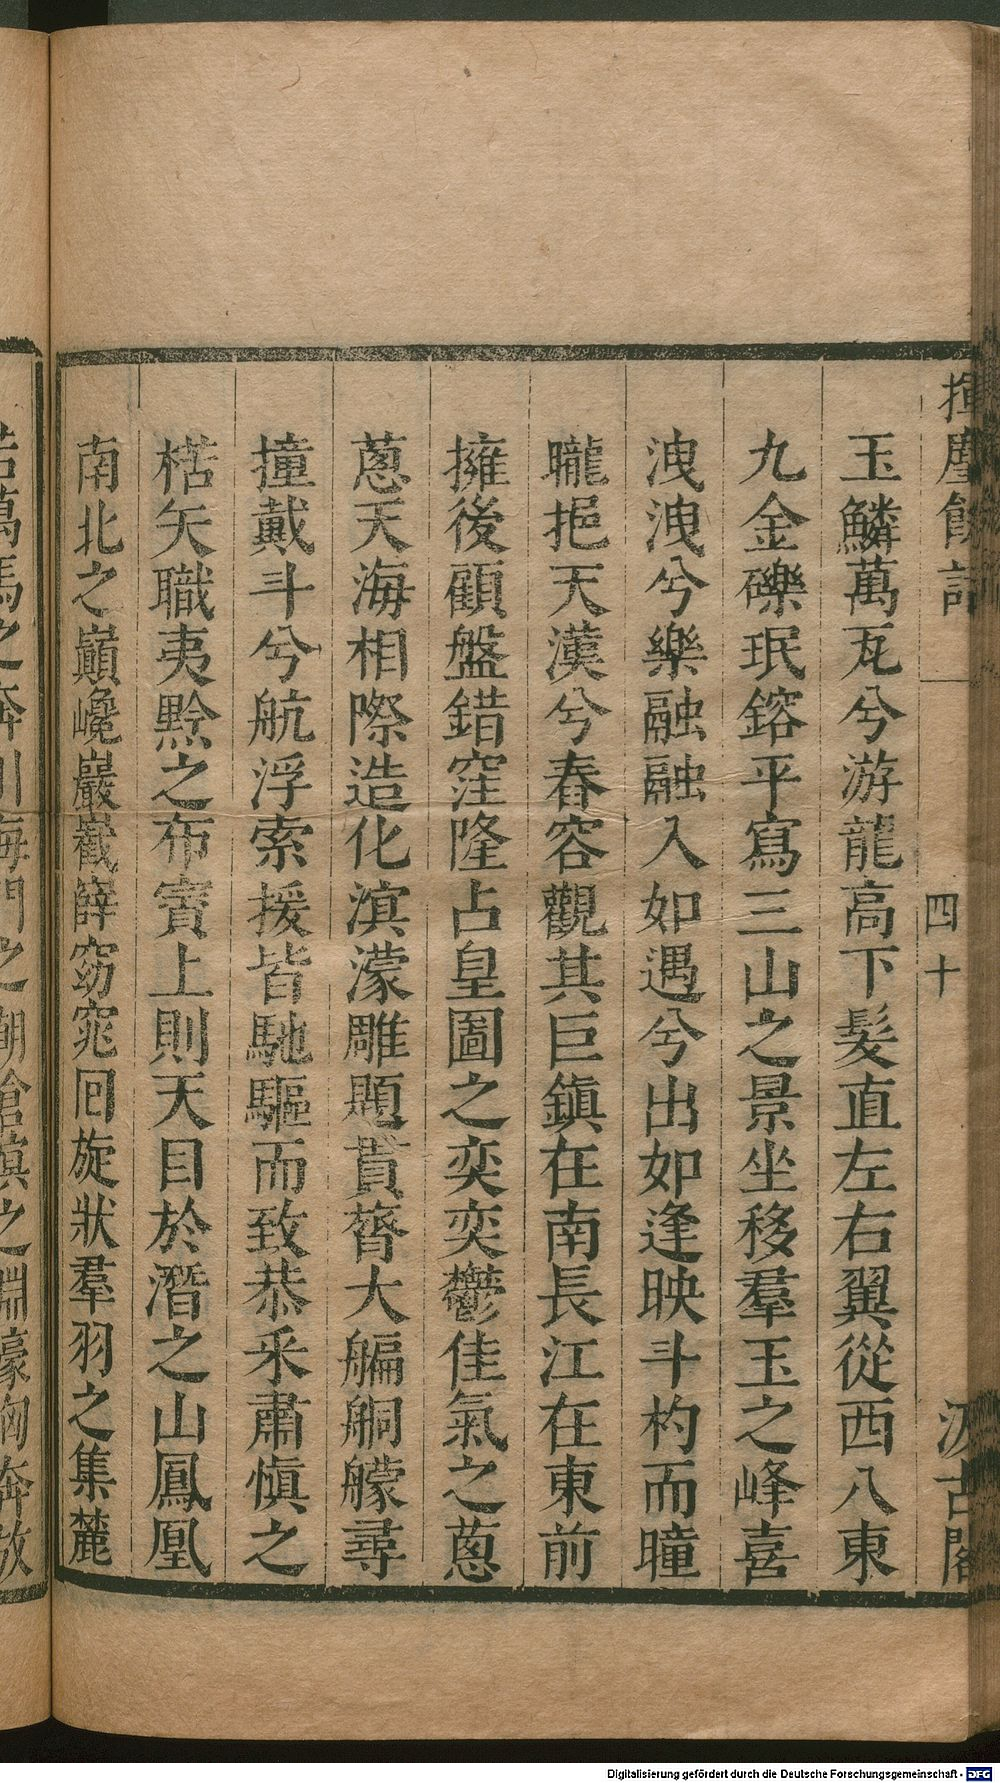 揮麈餘話 四十 汲古閣
玉鱗萬瓦兮游龍高下髮直左右翼從西八東
九金礫珉鎔平寫三山之景坐移羣玉之峰喜
洩洩兮樂融融入如遇兮出如逢映斗杓而曈
曨挹天漢兮舂容觀其巨鎮在南長江在東前
擁後顧盤錯窪隆占皇圖之奕奕鬱佳氣之蔥
蔥天海相際造化滇濛雕題貫𦟛大艑舸艨尋
撞戴斗兮航浮索援皆馳驅而致恭乎肅慎之
楛矢職夷黔之布賨上則天目於潛之山鳳凰
南北之巔巉巖嶻嶭窈窕回旋狀羣羽之集麓
若萬馬之奔川海門之潮滄溟之淵濠洶奔放
Digitalisierung gefördert durch die Deutsche Forschungsgemeinschaft - DFG